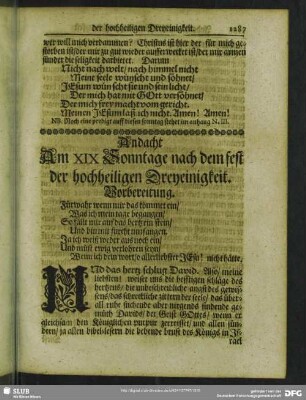 der hochheiligen Dreyeinigkeit. 1287
wer will mich verdammen? Christus ist hier der für mich ge-
storben ist/der mir zu gut wieder aufferwecket ist/der mir gantzen
sünder die seligkeit darbietet. Darum
Nicht nach welt/ nach himmel nicht
Meine seele wünscht und söhnet/
JEsum wünscht sie und sein licht/
Der mich hat mit GOtt versöhnet/
Der mich frey macht vom gericht.
Meinen JEsum laß ich nicht. Amen! Amen!
NB. Noch eine predigt auff diesen sonntag stehet im anhang N. III.
Andacht
Am XIX Sonntage nach dem fest
der hochheiligen Dreyeinigkeit.
Vorbereitung.
Fürwahr wenn mir das kömmet ein/
Was ich mein tage begangen/
So fällt mir auf das hertz ein stein/
Und bin mit furcht umfangen.
Ja ich weiß weder aus noch ein/
Und müste ewig verlohren seyn/
Wenn ich dein wort/o allerliebster JEsu! nicht hätte.
UNd das hertz schlug David. Also/ meine
liebsten/ weiset uns die hefftigen schläge des
hertzens/ die unbeschreibliche angst des gewis-
sens/ das schreckliche zittern der seele/ das über-
all ruhe suchende aber nirgends findende ge-
müth Davids/ der Geist GOttes/ wenn er
gleichsam den Königlichen purpur zerreisset/ und allen sün-
dern/ ja allen bibellesern die bebende brust des Königs in Is-
rael